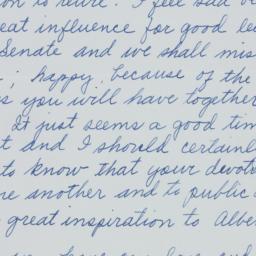 to retire. I feel sad be
eat influence for good le
Senate and we shall mis
; happy, because of the
s you will have together
at just seems a good tim
t and I should certainl
to know that your devot
ne another and to public
great inspiration to Albe